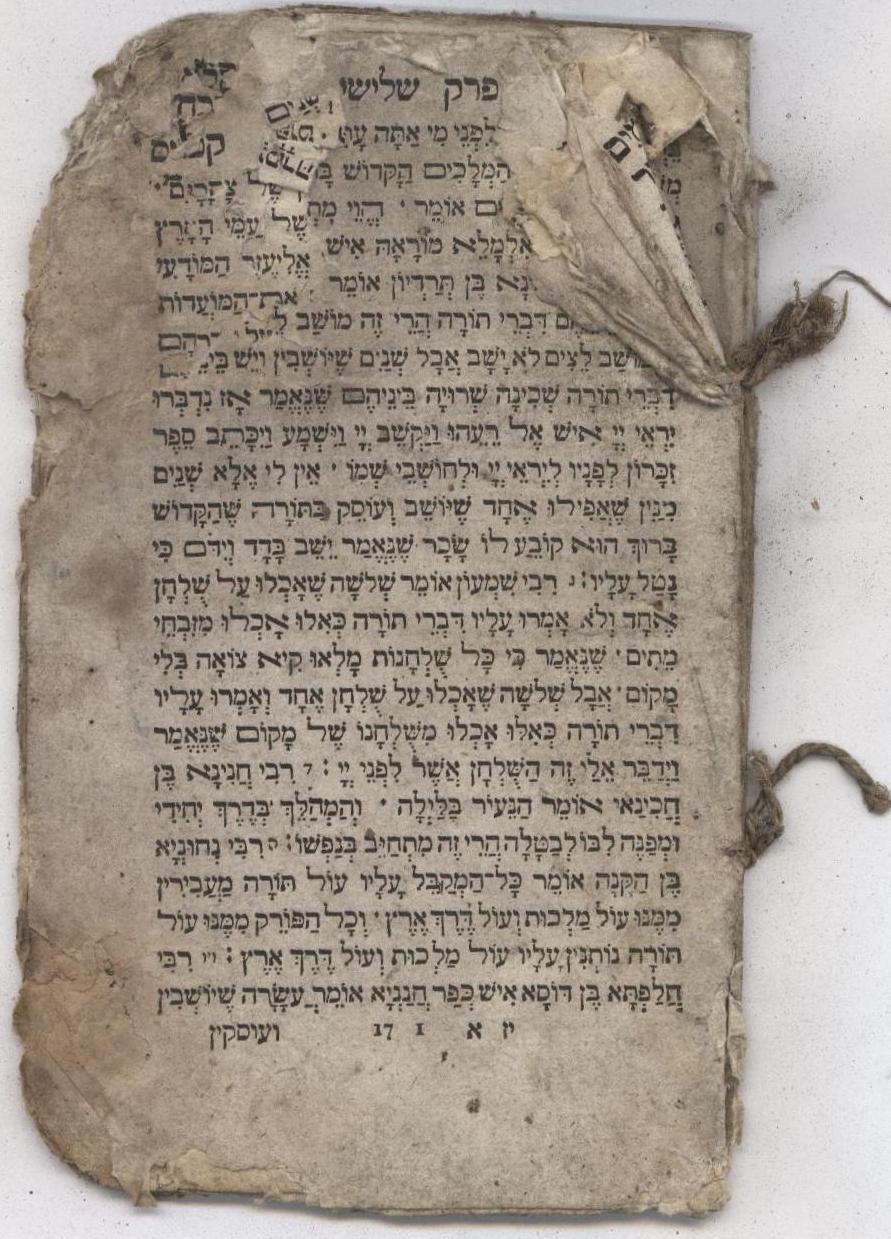 פרק שלישי
לִפְנֵי מִי אַתָּה
קמים
הַמְּלָכִים הַקָּדוֹשׁ
צָהֳרָיִם
אוֹמֵר · הֱוֵי
שֶׁל עַמֵּי הָאָרֶץ
אִלְמָלֵא מוֹרָאָהּ אִישׁ
אֱלִיעֶזֶר הַמּוֹדָעִי
בֶּן תְּרַדְיוֹן אוֹמֵר
אֶת־הַמּוֹעֲדוֹת
דִּבְרֵי תוֹרָה הֲרֵי זֶה מוֹשַׁב
לֵצִים לֹא יָשָׁב אֲבָל שְׁנַיִם שֶׁיּוֹשְׁבִין וְיֵשׁ
דִּבְרֵי תוֹרָה שְׁכִינָה שְׁרוּיָה בֵּינֵיהֶם שֶׁנֶּאֱמַר אָז נִדְבְּרוּ
יִרְאֵי יְיָ אִישׁ אֶל רֵעֵהוּ וַיַּקְשֵׁב יְיָ וַיִּשְׁמָע וַיִּכָּתֵב סֵפֶר
זִכָּרוֹן לְפָנָיו לְיִרְאֵי יְיָ וּלְחוֹשְׁבֵי שְׁמוֹ · אֵין לִי אֶלָּא שְׁנַיִם
מִנַּיִן שֶׁאֲפִילוּ אֶחָד שֶׁיּוֹשֵׁב וְעוֹסֵק בַּתּוֹרָה שֶׁהַקָּדוֹשׁ
בָּרוּךְ הוּא קוֹבֵעַ לוֹ שָׂכָר שֶׁנֶּאֱמַר יֵשֵׁב בָּדָד וְיִדֹּם כִּי
נָטַל עָלָיו : רִבִּי שִׁמְעוֹן אוֹמֵר שְׁלֹשָׁה שֶׁאָכְלוּ עַל שֻׁלְחָן
אֶחָד וְלֹא אָמְרוּ עָלָיו דִּבְרֵי תוֹרָה כְּאִלּוּ אָכְלוּ מִזִּבְחֵי
מֵתִים · שֶׁנֶּאֱמַר כִּי כָּל שֻׁלְחָנוֹת מָלְאוּ קִיא צוֹאָה בְּלִי
מָקוֹם · אֲבָל שְׁלֹשָׁה שֶׁאָכְלוּ עַל שֻׁלְחָן אֶחָד וְאָמְרוּ עָלָיו
דִּבְרֵי תוֹרָה כְּאִלּוּ אָכְלוּ מִשֻּׁלְחָנוֹ שֶׁל מָקוֹם שֶׁנֶּאֱמַר
וַיְדַבֵּר אֵלַי זֶה הַשֻּׁלְחָן אֲשֶׁר לִפְנֵי יְיָ : ד רִבִּי חֲנִינָא בֶּן
חֲכִינַאי אוֹמֵר הַנֵּעוֹר בַּלַּיְלָה · וְהַמְהַלֵּךְ בַּדֶּרֶךְ יְחִידִי
וּמְפַנֶּה לִבּוֹ לְבַטָּלָה הֲרֵי זֶה מִתְחַיֵּב בְּנַפְשׁוֹ : ה רִבִּי נְחוּנְיָא
בֶּן הַקָּנָה אוֹמֵר כָּל־הַמְקַבֵּל עָלָיו עוֹל תּוֹרָה מַעֲבִירִין
מִמֶּנּוּ עוֹל מַלְכוּת וְעוֹל דֶּרֶךְ אֶרֶץ · וְכָל הַפּוֹרֵק מִמֶּנּוּ עוֹל
תּוֹרָה נוֹתְנִין עָלָיו עוֹל מַלְכוּת וְעוֹל דֶּרֶךְ אֶרֶץ : ו רִבִּי
חֲלַפְתָּא בֶּן דּוֹסָא אִישׁ כְּפַר חֲנַנְיָא אוֹמֵר עֲשָׂרָה שֶׁיּוֹשְׁבִין
יז א 1 17 ועוסקין